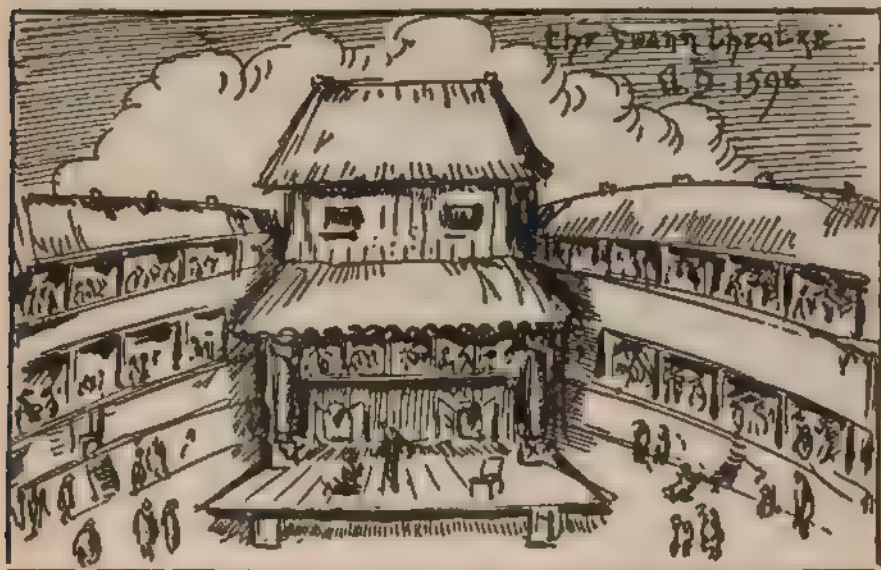 the Swann theater
A D 1596